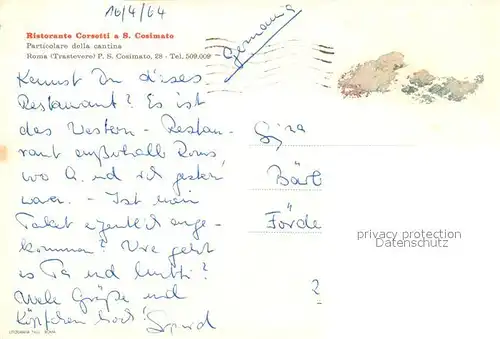 16/4/64
Ristorante Corsetti a S. Cosimato
Particolare della cantina
Roma (Trastevere) P. S. Cosimato, 28 - Tel. 509.009
Germania
Kennst Du dises
Restaurant? Es ist
das Western-Restau-
rant außerhalb Roms,
wo G. und ich gestern
waren. - Ist mein
Paket eigentlich ange-
kommen? Wie geht
es Pa und Mutti?
Viele Grüße und
Köpfchen hoch!
Bärb
Förde
2
privacy protection
Datenschutz